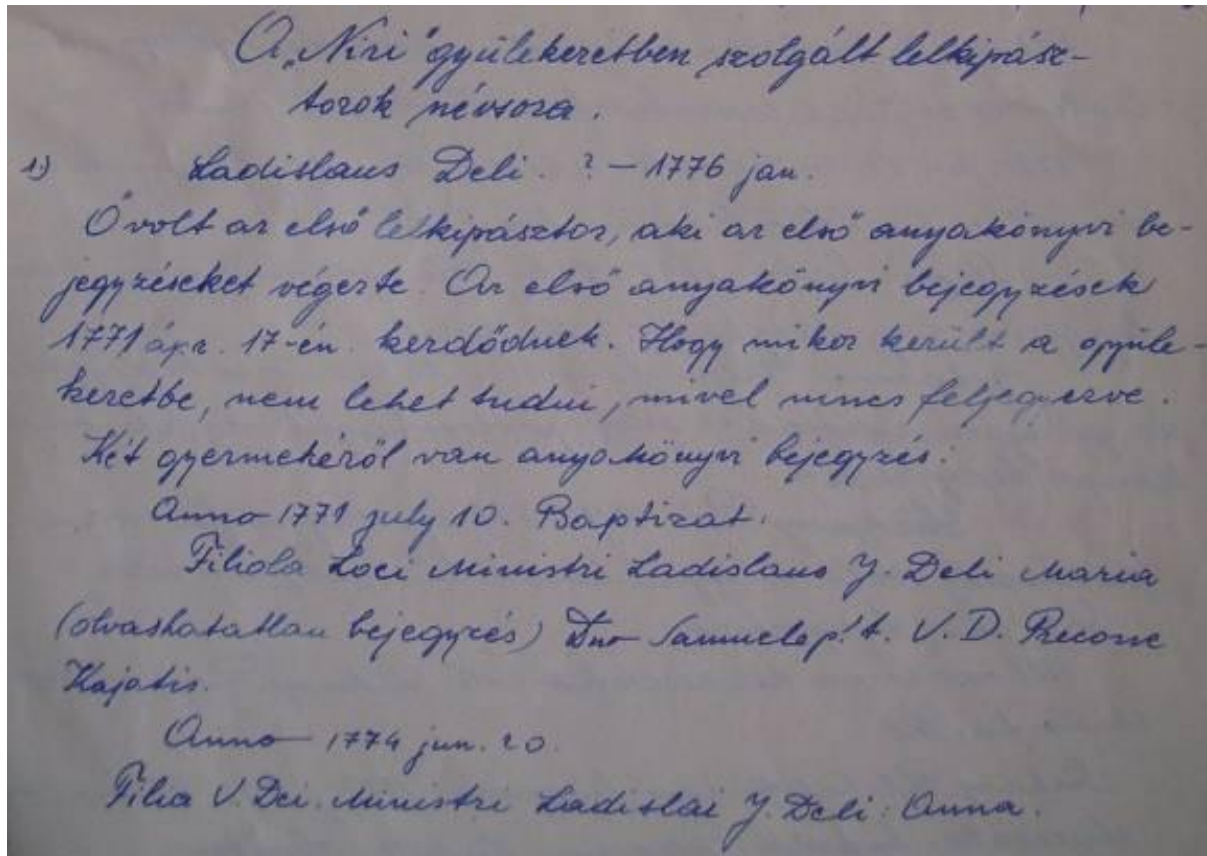 A „Niri” gyülekezetben szolgált lelkipász-
torok névsora.
1) Ladislaus Deli. ? – 1776 jan.
Ő volt az első lelkipásztor, aki az első anyakönyvi be-
jegyzéseket végezte. Az első anyakönyvi bejegyzések
1771 ápr. 17-én kezdődnek. Hogy mikor került a gyüle-
kezetbe, nem lehet tudni, mivel nincs feljegyezve.
Két gyermekéről van anyakönyvi bejegyzés:
Anno 1771 july 10. Baptizat.
Filiola Loci Ministri Ladislaus J. Deli Maria
(olvashatatlan bejegyzés) Dno Samuele p. t. V. D.
Kajatis.
Anno 1774 jun. 20.
Filia V. Dei Ministri Ladislai J. Deli: Anna.